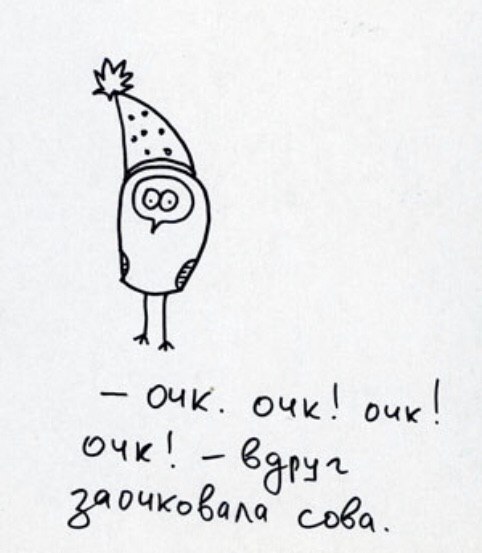 — очк. очк! очк!
очк! — вдруг
заочковала сова.